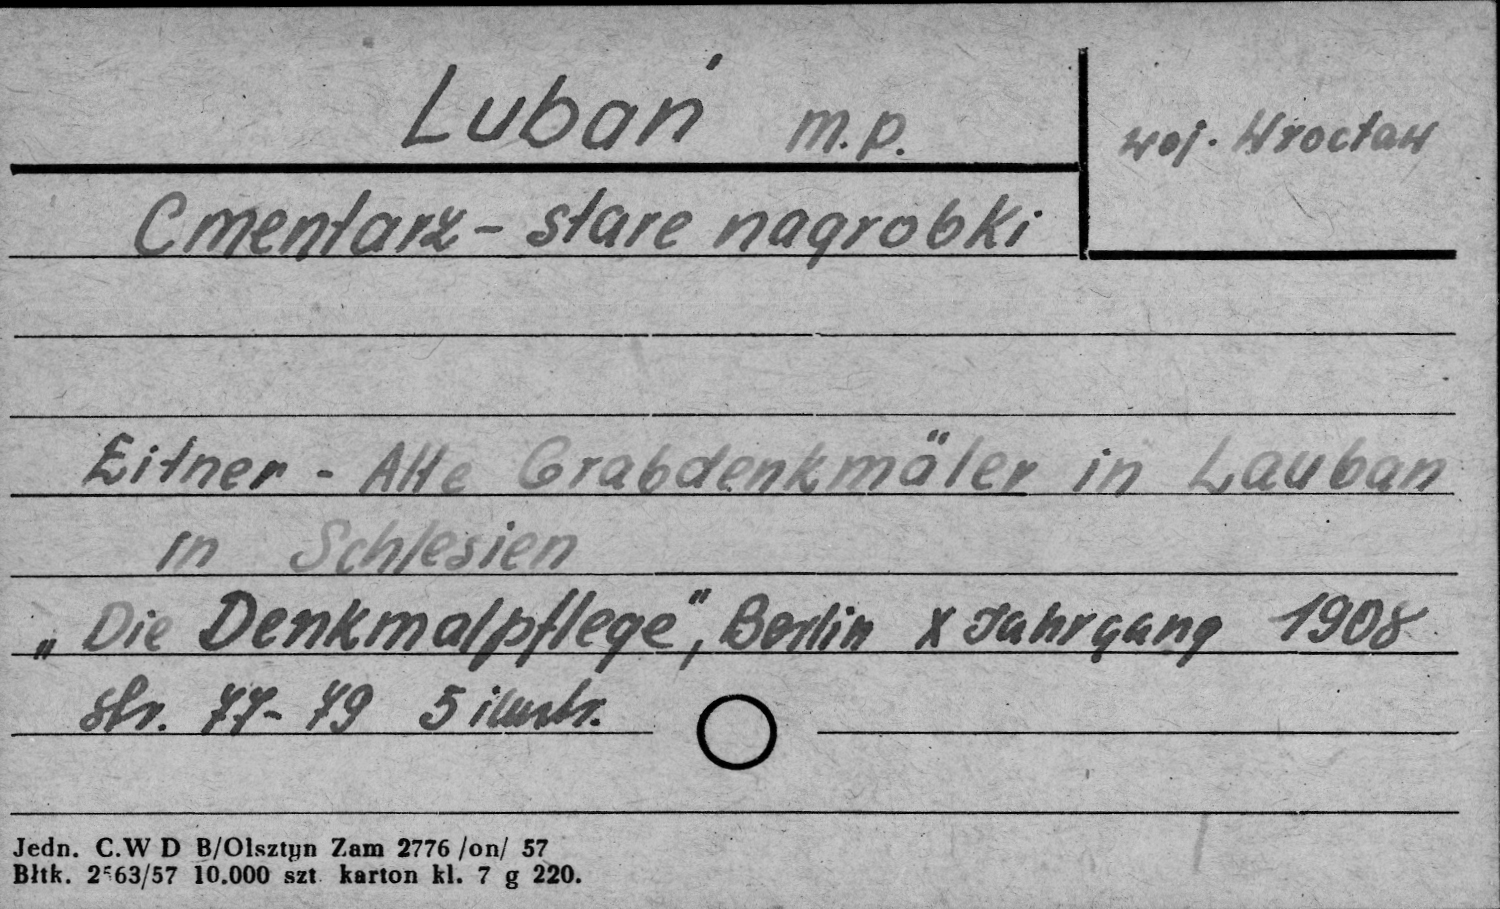 Lubań m.p.
woj. Wrocław
Cmentarz - stare nagrobki
Eitner - Alte Grabdenkmäler in Lauban
in Schlesien
„Die Denkmalpflege", Berlin X Jahrgang 1908
str. 77-79 5 ilustr.
Jedn. C.W D B/Olsztyn Zam 2776 /on/ 57
Błtk. 2563/57 10.000 szt karton kl. 7 g 220.